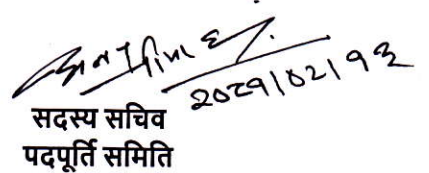 २०८१।०२।१३
सदस्य सचिव
पदपूर्ति समिति